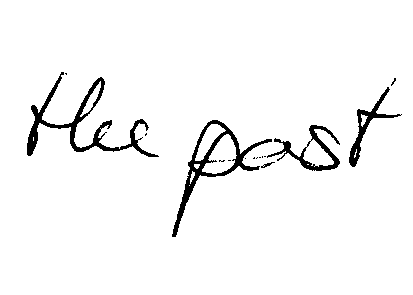 the past